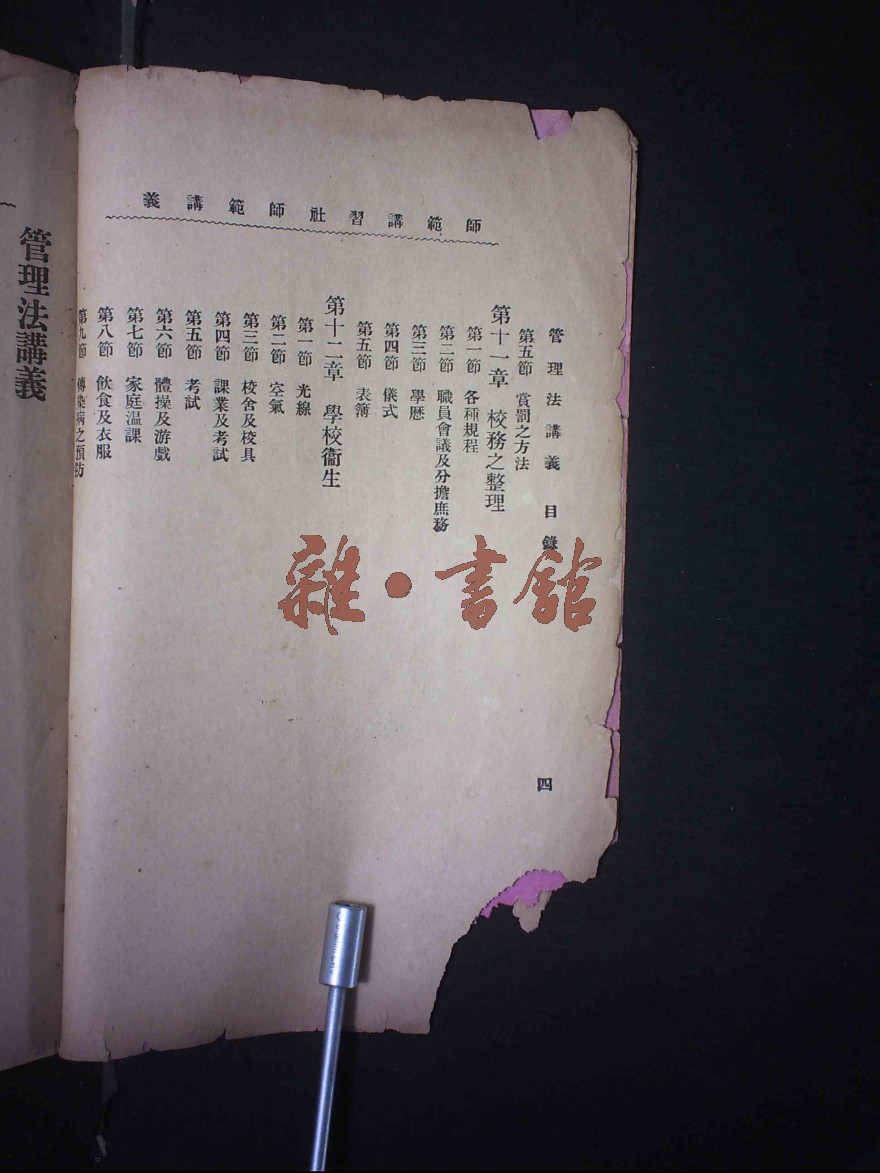 師範講習社師範講義
管理法講義 目錄 四
第五節 賞罰之方法
第十一章 校務之整理
第一節 各種規程
第二節 職員會議及分擔庶務
第三節 學歷
第四節 儀式
第五節 表簿
第十二章 學校衞生
第一節 光線
第二節 空氣
第三節 校舍及校具
第四節 課業及考試
第五節 考試
第六節 體操及游戲
第七節 家庭温課
第八節 飲食及衣服
第九節 傳染病之預防
管理法講義
雜·書館